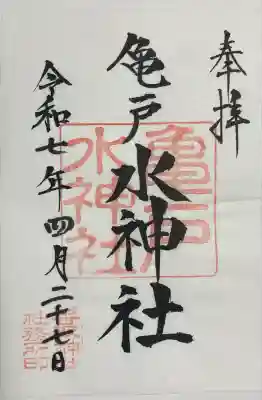 奉拝
亀戸水神社
令和七年四月二十七日
亀戸
水神社